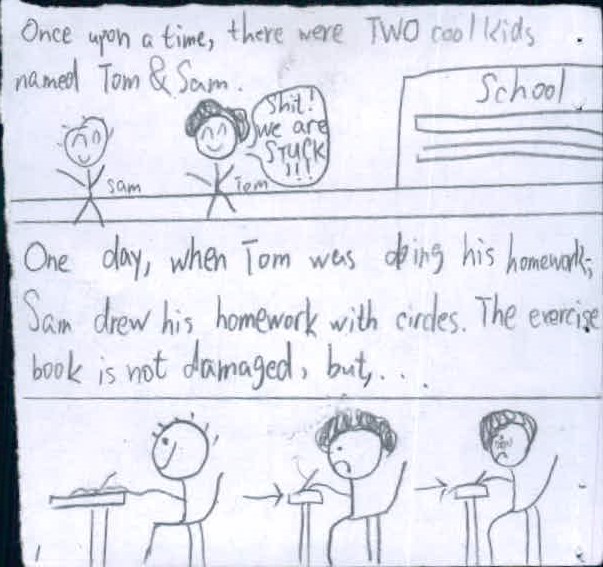 Once upon a time, there were TWO cool kids
named Tom & Sam.
School
Shit!
we are
STUCK
!!!
Sam
Tom
One day, when Tom was doing his homework,
Sam drew his homework with circles. The exercise
book is not damaged, but,...